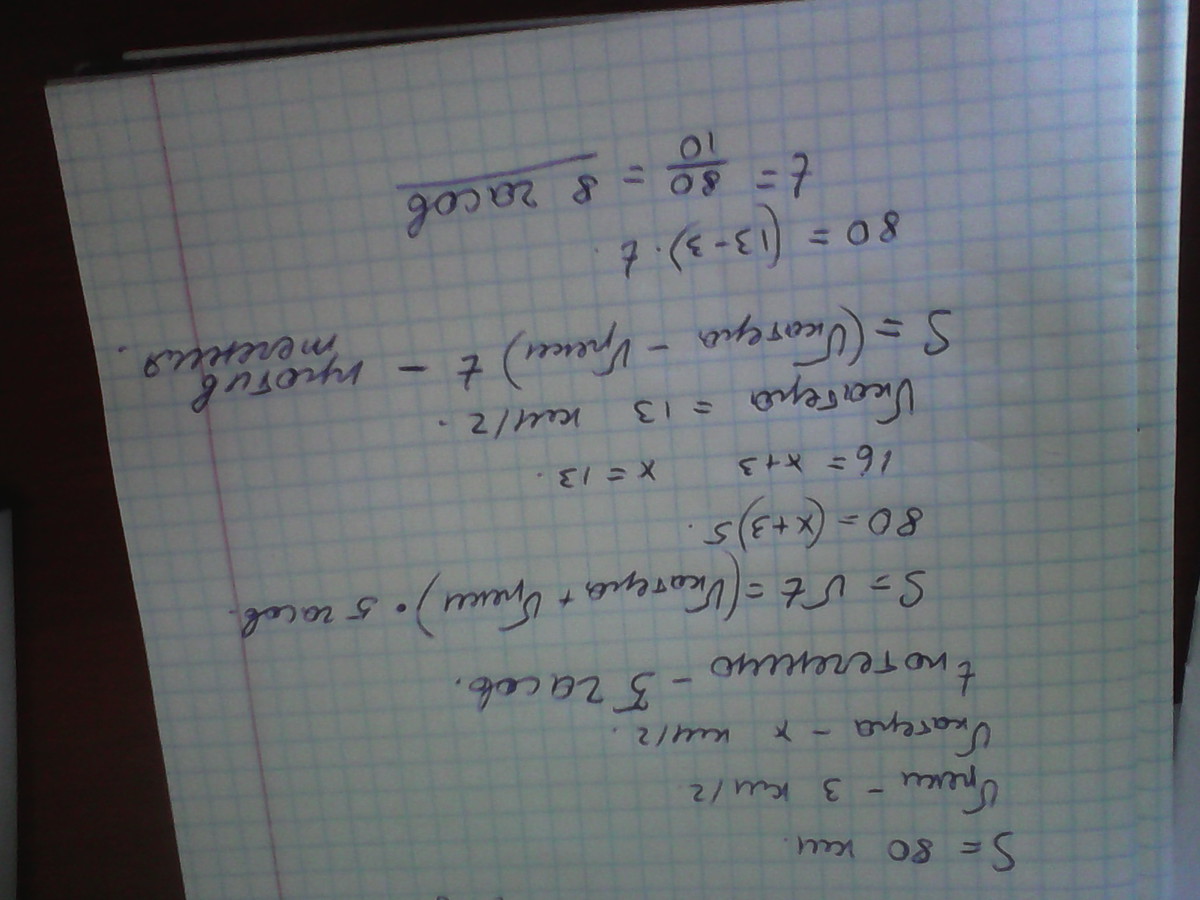 S = 80 км.
Vреки - 3 км/г
Vкатера - x км/г.
t по течению - 5 часов.
S = Vt = (Vкатера + Vреки) · 5 часов.
80 = (x+3)5.
16 = x+3 x = 13.
Vкатера = 13 км/г.
S = (Vкатера - Vреки) t - против течения.
80 = (13-3)·t.
t = 80/10 = 8 часов